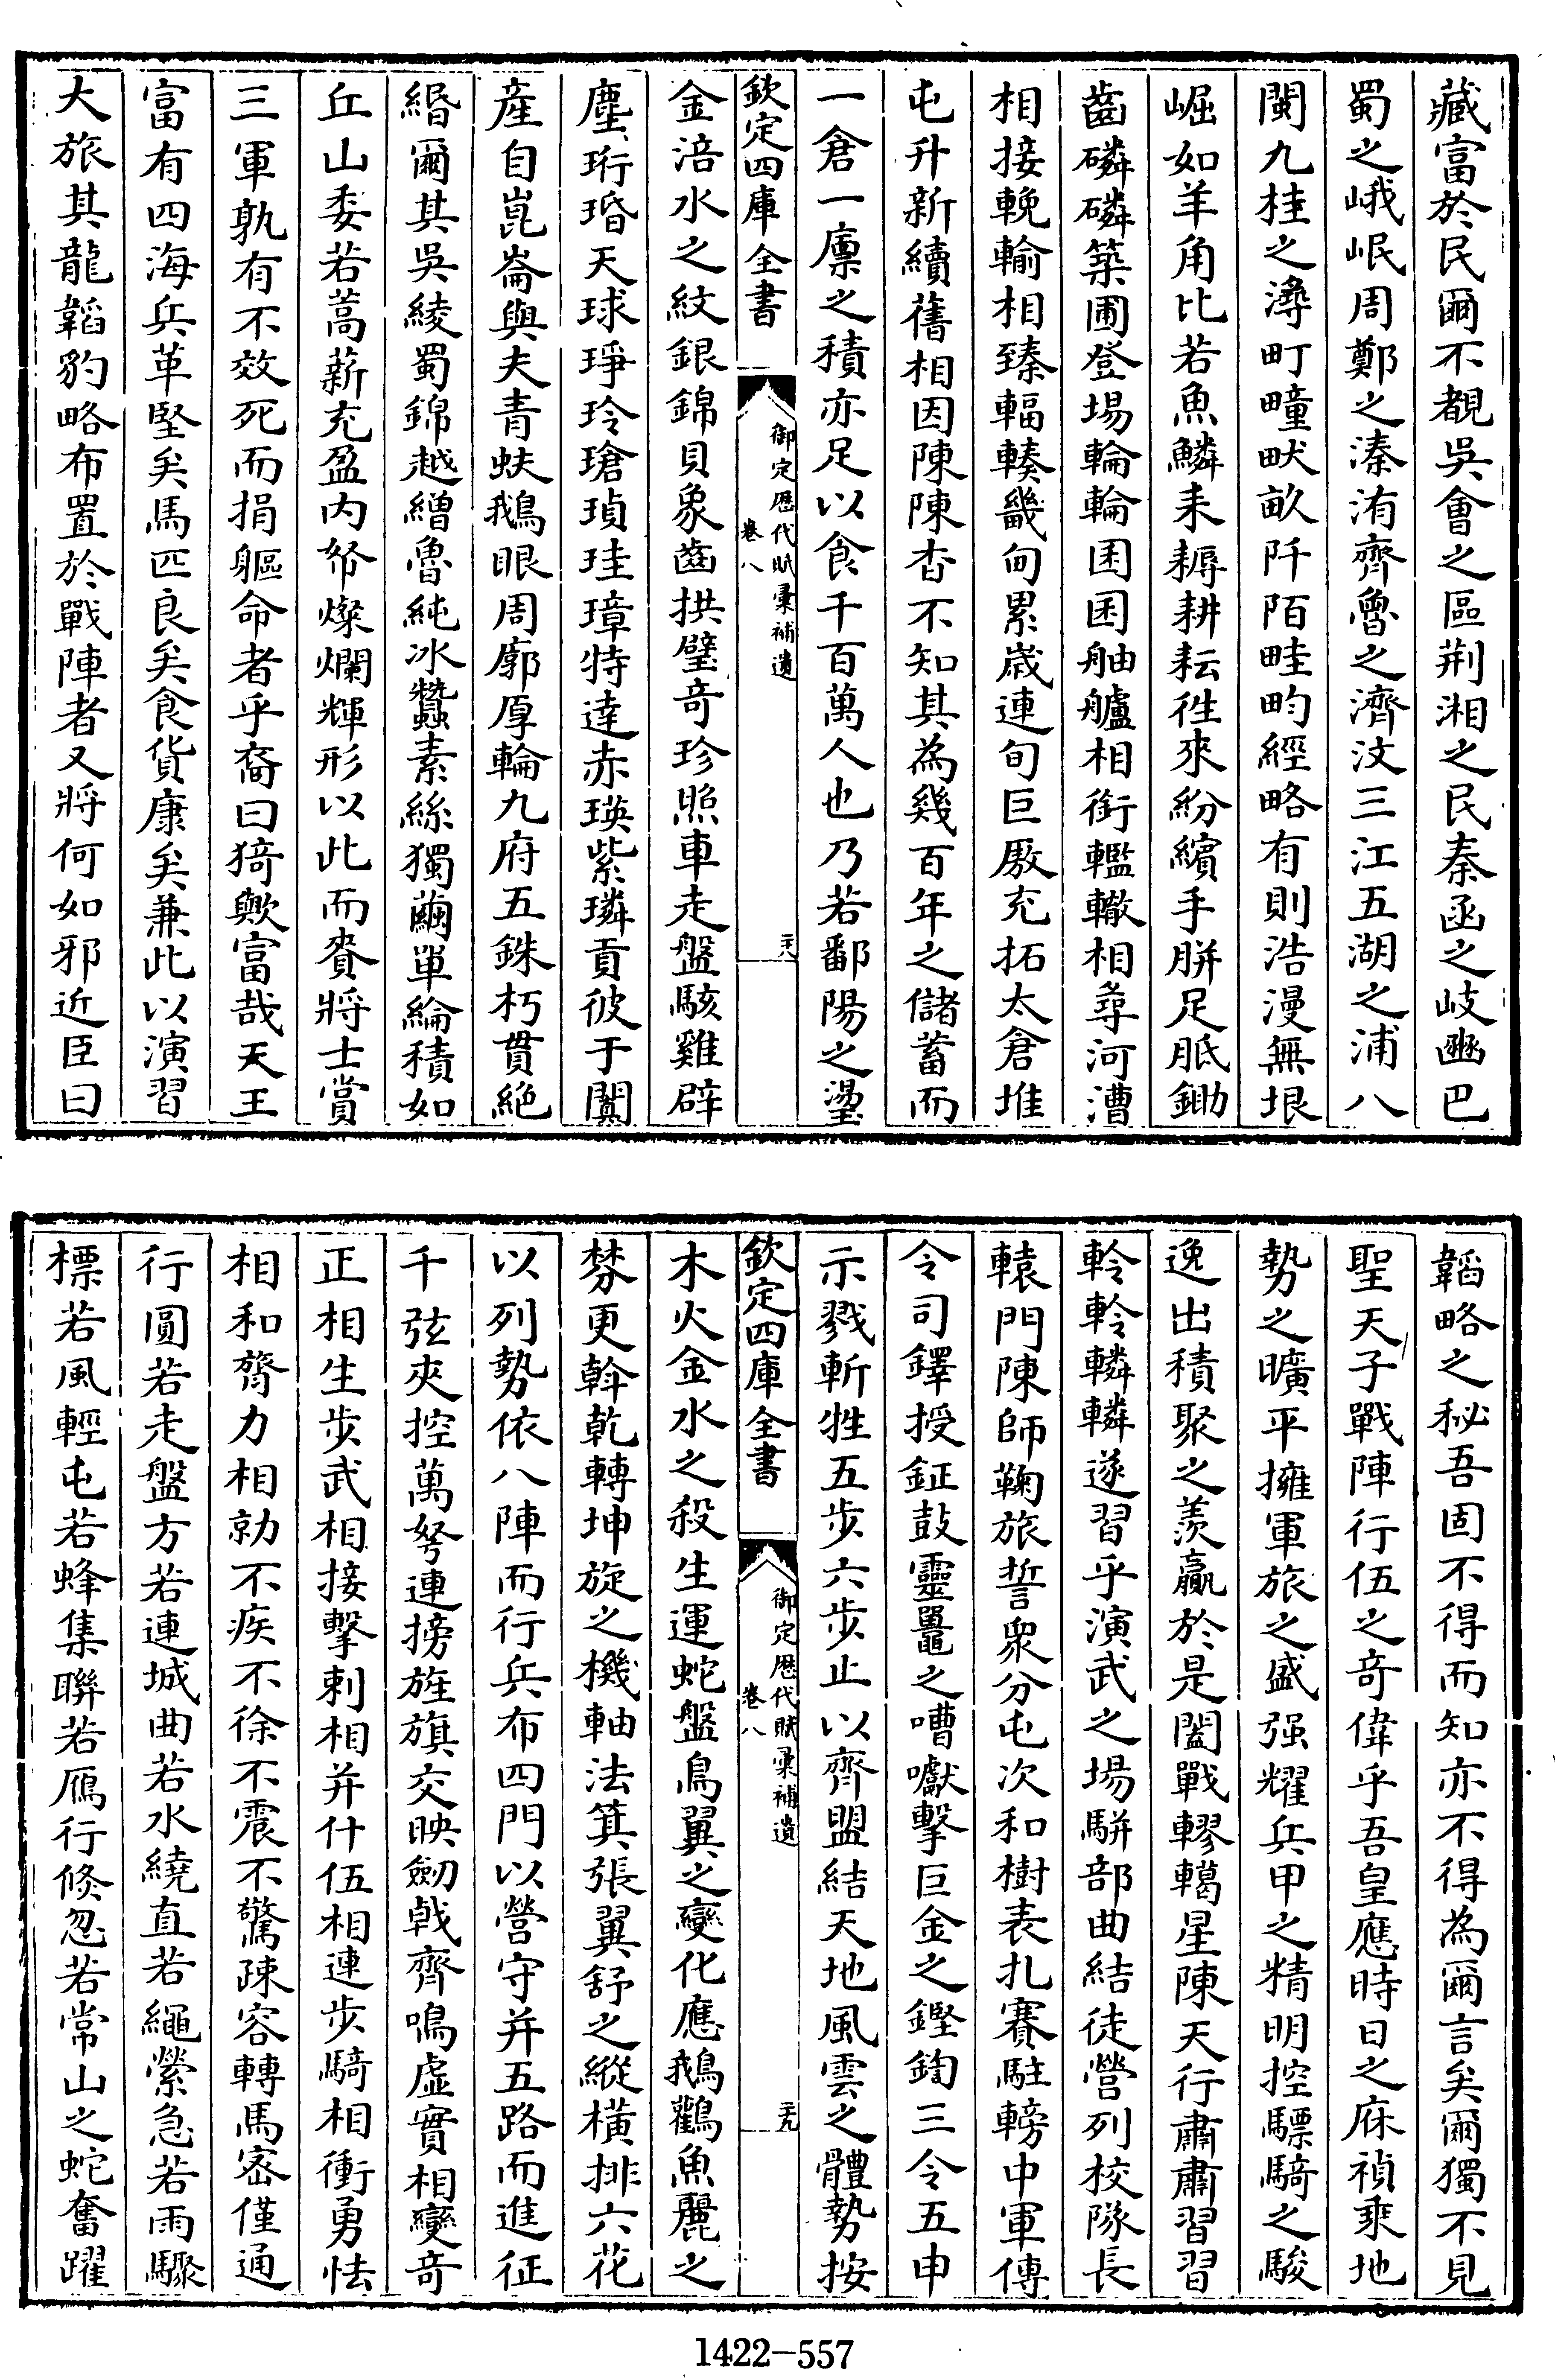 藏富於民爾不覩吳會之區荆湘之民秦函之岐豳巴
蜀之峨岷周鄭之溱洧齊魯之濟汶三江五湖之浦八
閩九桂之潯町畽畎畝阡陌畦畇經略有則浩漫無垠
崛如羊角比若魚鱗耒耨耕耘徃來紛繽手胼足胝鋤
齒磷磷築圃登場輪輪囷囷舳艫相銜轞轍相尋河漕
相接輓輸相臻輻輳畿甸累歲連旬巨廒充拓太倉堆
屯升新續舊相因陳陳杳不知其為幾百年之儲蓄而
一倉一廪之積亦足以食千百萬人也乃若鄱陽之鎏
欽定四庫全書
御定歷代賦彙補遺
卷八
二十九
金涪水之紋銀錦貝象齒拱璧奇珍照車走盤駭雞辟
塵珩瑉天球琤玲瑲瑱珪璋特達赤瑛紫璘貢彼于闐
產自崑崙與夫青蚨鵝眼周廓厚輪九府五銖朽貫絶
緡爾其吳綾蜀錦越繒魯純冰蠶素絲獨繭單綸積如
丘山委若蒿薪充盈内帑燦爛輝形以此而賚將士賞
三軍孰有不效死而捐軀命者乎裔曰猗歟富哉天王
富有四海兵革堅矣馬匹良矣食貨康矣兼此以演習
大旅其龍韜豹略布置於戰陣者又將何如邪近臣曰
韜略之秘吾固不得而知亦不得為爾言矣爾獨不見
聖天子戰陣行伍之奇偉乎吾皇應時日之庥禎乘地
勢之曠平擁軍旅之盛强耀兵甲之精明控驃騎之駿
逸出積聚之羨贏於是闔戰轇轕星陳天行肅肅習習
軨軨轔轔遂習乎演武之場駢部曲結徒營列校隊長
轅門陳師鞠旅誓衆分屯次和樹表扎賽駐轅中軍傳
令司鐸授鉦鼓靈鼉之嘈囐擊巨金之鏗鍧三令五申
示戮斬牲五步六步止以齊盟結天地風雲之體勢按
欽定四庫全書
御定歷代賦彙補遺
卷八
二十九
木火金水之殺生運蛇盤鳥翼之變化應鵝鸛魚麗之
棼更斡乾轉坤旋之機軸法箕張翼舒之縱橫排六花
以列勢依八陣而行兵布四門以營守并五路而進征
千弦夾控萬弩連搒旌旗交映劒戟齊鳴虛實相變奇
正相生步武相接擊刺相并什伍相連步騎相衝勇怯
相和膂力相勍不疾不徐不震不驚疎容轉馬宻僅通
行圓若走盤方若連城曲若水繞直若繩縈急若雨驟
標若風輕屯若蜂集聯若鴈行倐忽若常山之蛇奮躍
1422-557